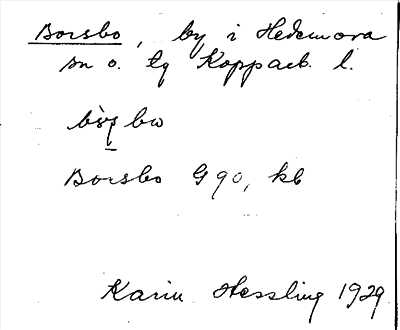 Borsbo, by i Hedemora
sn o. tg Kopparb. l.
Borsbo G 90, kb
Karin Hessling 1929